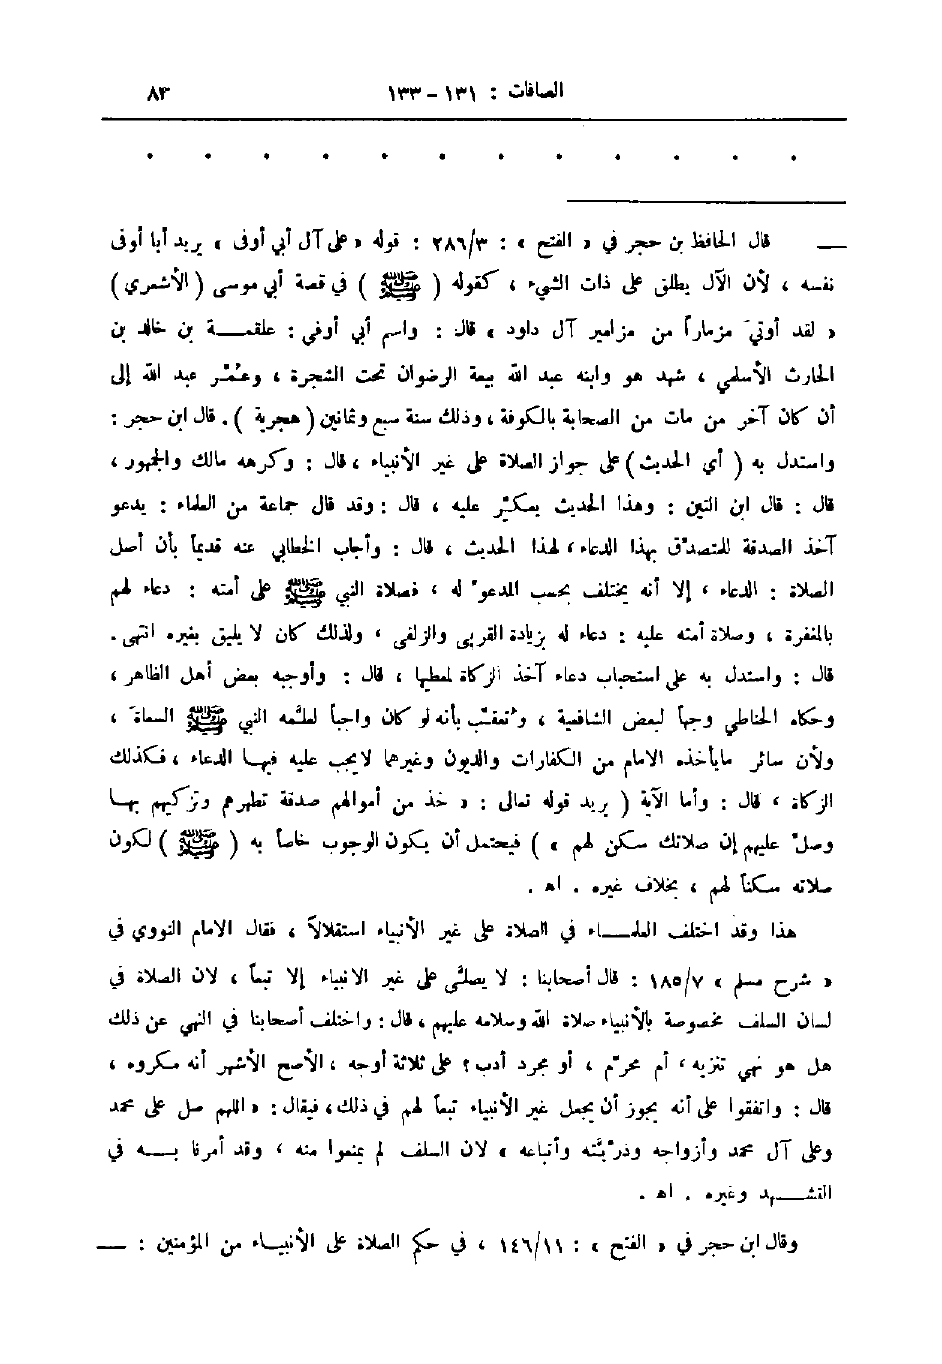 الصافات : ١٣١ – ١٣٣ ٨٣
. . . . . . . . . . . .
— قال الحافظ بن حجر في « الفتح » : ٢٨٦/٣ : قوله « على آل أبي أوفى » يريد أبا أوفى
نفسه ، لأن الآل يطلق على ذات الشيء ، كقوله ( ﷺ ) في قصة أبي موسى ( الأشعري )
« لقد أوتيَ مزماراً من مزامير آل داود » قال : واسم أبي أوفي : علقمــة بن خالد بن
الحارث الأسلمي ، شهد هو وابنه عبد الله بيعة الرضوان تحت الشجرة ، وعُمِّر عبد الله إلى
أن كان آخر من مات من الصحابة بالكوفة ، وذلك سنة سبع وثمانين ( هجرية ) . قال ابن حجر :
واستدل به ( أي الحديث ) على جواز الصلاة على غير الأنبياء ، قال : وكرهه مالك والجمهور ،
قال : قال ابن التين : وهذا الحديث يعكّر عليه ، قال : وقد قال جماعة من العلماء : يدعو
آخذ الصدقة للمتصدّق بهذا الدعاء ، لهذا الحديث ، قال : وأجاب الخطابي عنه قديماً بأن أصل
الصلاة : الدعاء ، إلا أنه يختلف بحسب المدعوّ له ، فصلاة النبي ﷺ على أمته : دعاء لهم
بالمغفرة ، وصلاة أمته عليه : دعاء له بزيادة القربى والزلفى ، ولذلك كان لا يليق بغيره انتهى .
قال : واستدل به على استحباب دعاء آخذ الزكاة لمعطيها ، قال : وأوجبه بعض أهل الظاهر ،
وحكاه الحناطي وجهاً لبعض الشافعية ، وتُعقّب بأنه لو كان واجباً لعلّمه النبي ﷺ السعاةَ ،
ولأن سائر مايأخذه الامام من الكفارات والديون وغيرهما لايجب عليه فيهـا الدعاء ، فكذلك
الزكاة ، قال : وأما الآية ( يريد قوله تعالى : « خذ من أموالهم صدقة تطهرهم وتزكيهم بهـا
وصلّ عليهم إن صلاتك سكن لهم » ) فيحتمل أن يكون الوجوب خاصاً به ( ﷺ ) لكون
صلاته سكناً لهم ، بخلاف غيره . اه .
هذا وقد اختلف العلمــاء في الصلاة على غير الأنبياء استقلالاً ، فقال الامام النووي في
« شرح مسلم » ١٨٥/٧ : قال أصحابنا : لا يصلّى على غير الانبياء إلا تبعاً ، لان الصلاة في
لسان السلف مخصوصة بالأنبياء صلاة الله وسلامه عليهم ، قال : واختلف أصحابنا في النهي عن ذلك
هل هو نهي تنزيه ، أم محرّم ، أو مجرد أدب ؟ على ثلاثة أوجه ، الأصح الأشهر أنه مكروه ،
قال : واتفقوا على أنه يجوز أن يجعل غير الأنبياء تبعاً لهم في ذلك ، فيقال : « اللهم صل على محمد
وعلى آل محمد وأزواجه وذرّيّته وأتباعه » لان السلف لم يمنعوا منه ، وقد أمرنا بــه في
التشــهد وغيره . اه .
وقال ابن حجر في « الفتح » : ١٤٦/١١ ، في حكم الصلاة على الأنبيــاء من المؤمنين : —